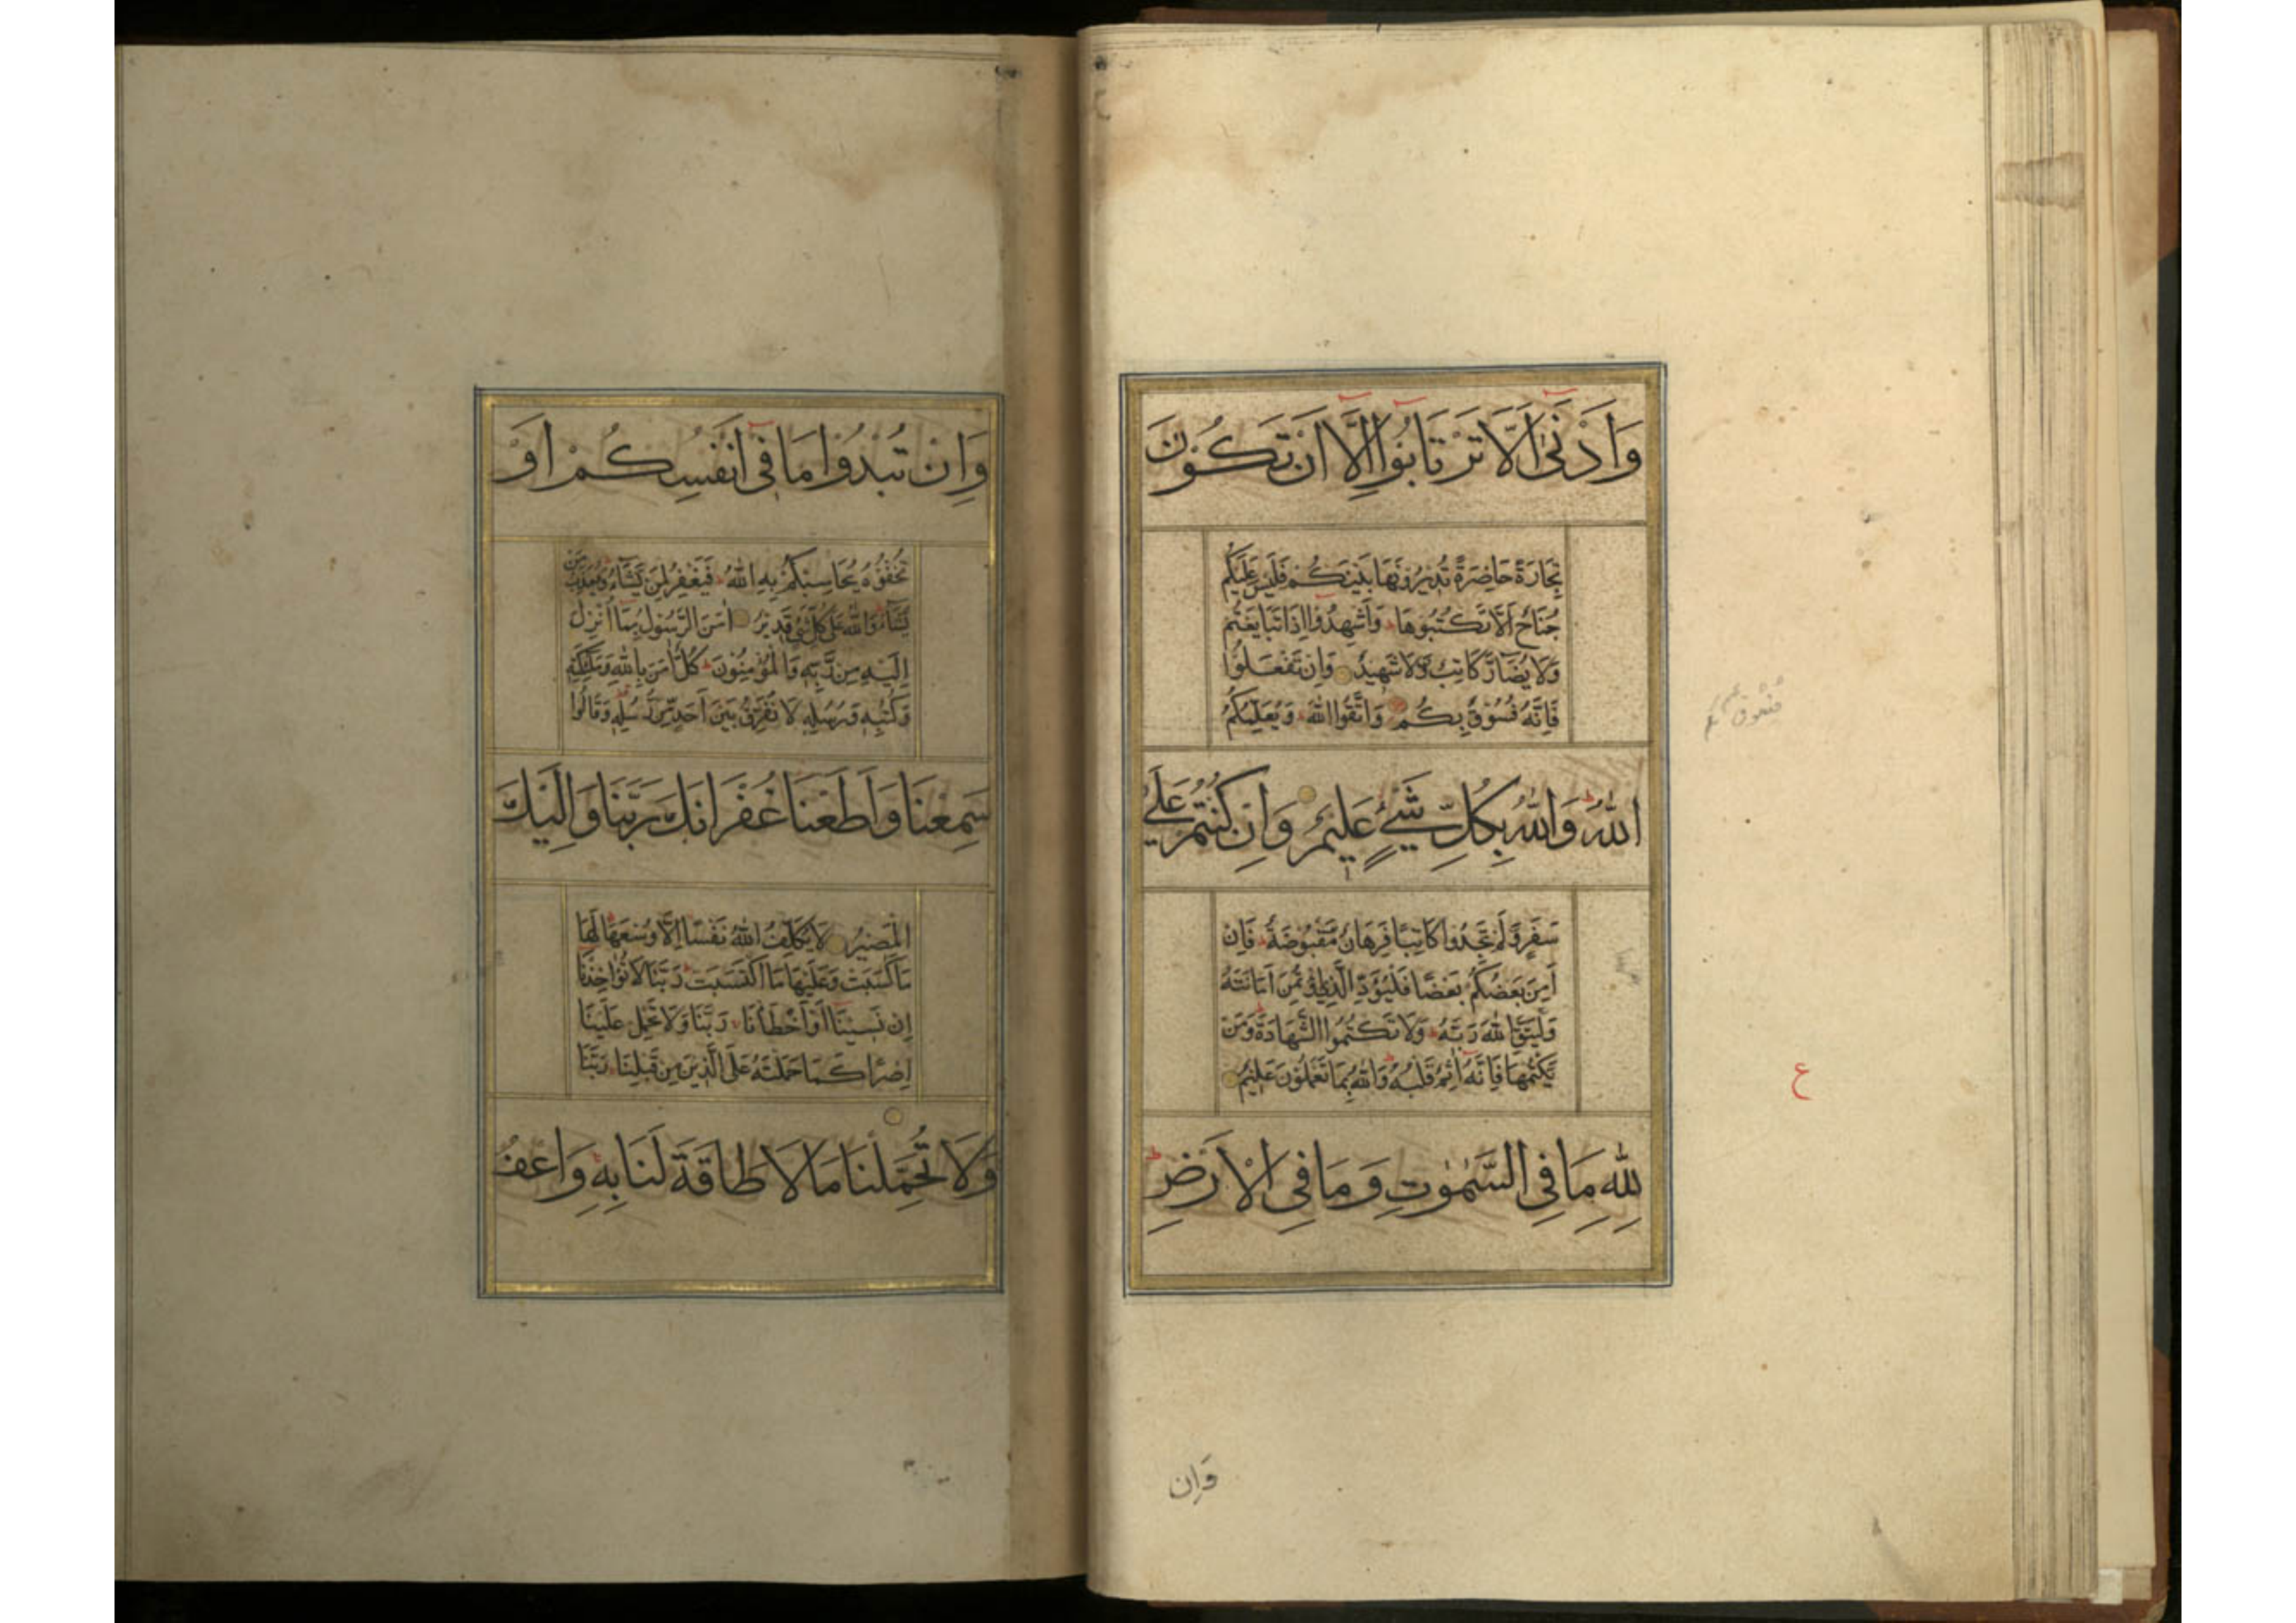 وَاَدْنٰى اَلَّا تَرْتَابُوا اِلَّا اَنْ تَكُوْنَ
تِجَارَةً حَاضِرَةً تُدِيْرُوْنَهَا بَيْنَكُمْ فَلَيْسَ عَلَيْكُمْ
جُنَاحٌ اَلَّا تَكْتُبُوهَا وَاَشْهِدُوْا اِذَا تَبَايَعْتُمْ
وَلَا يُضَارَّ كَاتِبٌ وَّلَا شَهِيْدٌ وَاِنْ تَفْعَلُوْا
فَاِنَّهُ فُسُوْقٌ بِكُمْ وَاتَّقُوا اللّٰهَ وَيُعَلِّمُكُمُ
اللّٰهُ وَاللّٰهُ بِكُلِّ شَيْءٍ عَلِيْمٌ وَاِنْ كُنْتُمْ عَلٰى
سَفَرٍ وَّلَمْ تَجِدُوا كَاتِبًا فَرِهَانٌ مَّقْبُوْضَةٌ فَاِنْ
اَمِنَ بَعْضُكُمْ بَعْضًا فَلْيُؤَدِّ الَّذِي اؤْتُمِنَ اَمَانَتَهُ
وَلْيَتَّقِ اللّٰهَ رَبَّهُ وَلَا تَكْتُمُوا الشَّهَادَةَ وَمَنْ
يَّكْتُمْهَا فَاِنَّهُ اٰثِمٌ قَلْبُهُ وَاللّٰهُ بِمَا تَعْمَلُوْنَ عَلِيْمٌ
لِلّٰهِ مَا فِي السَّمٰوٰتِ وَمَا فِي الْاَرْضِ
ع
وَاِن
وَاِنْ تُبْدُوْا مَا فِىْ اَنْفُسِكُمْ اَوْ
تُخْفُوْهُ يُحَاسِبْكُمْ بِهِ اللّٰهُ فَيَغْفِرُ لِمَنْ يَّشَاءُ وَيُعَذِّبُ مَنْ
يَّشَاءُ وَاللّٰهُ عَلٰى كُلِّ شَيْءٍ قَدِيْرٌ اٰمَنَ الرَّسُوْلُ بِمَا اُنْزِلَ
اِلَيْهِ مِنْ رَّبِّهِ وَالْمُؤْمِنُوْنَ كُلٌّ اٰمَنَ بِاللّٰهِ وَمَلٰئِكَتِهِ
وَكُتُبِهِ وَرُسُلِهِ لَا نُفَرِّقُ بَيْنَ اَحَدٍ مِّنْ رُّسُلِهِ وَقَالُوْا
سَمِعْنَا وَاَطَعْنَا غُفْرَانَكَ رَبَّنَا وَاِلَيْكَ
الْمَصِيْرُ لَا يُكَلِّفُ اللّٰهُ نَفْسًا اِلَّا وُسْعَهَا لَهَا
مَا كَسَبَتْ وَعَلَيْهَا مَا اكْتَسَبَتْ رَبَّنَا لَا تُؤَاخِذْنَا
اِنْ نَسِيْنَا اَوْ اَخْطَأْنَا رَبَّنَا وَلَا تَحْمِلْ عَلَيْنَا
اِصْرًا كَمَا حَمَلْتَهُ عَلَى الَّذِيْنَ مِنْ قَبْلِنَا رَبَّنَا
وَلَا تُحَمِّلْنَا مَا لَا طَاقَةَ لَنَا بِهِ وَاعْفُ